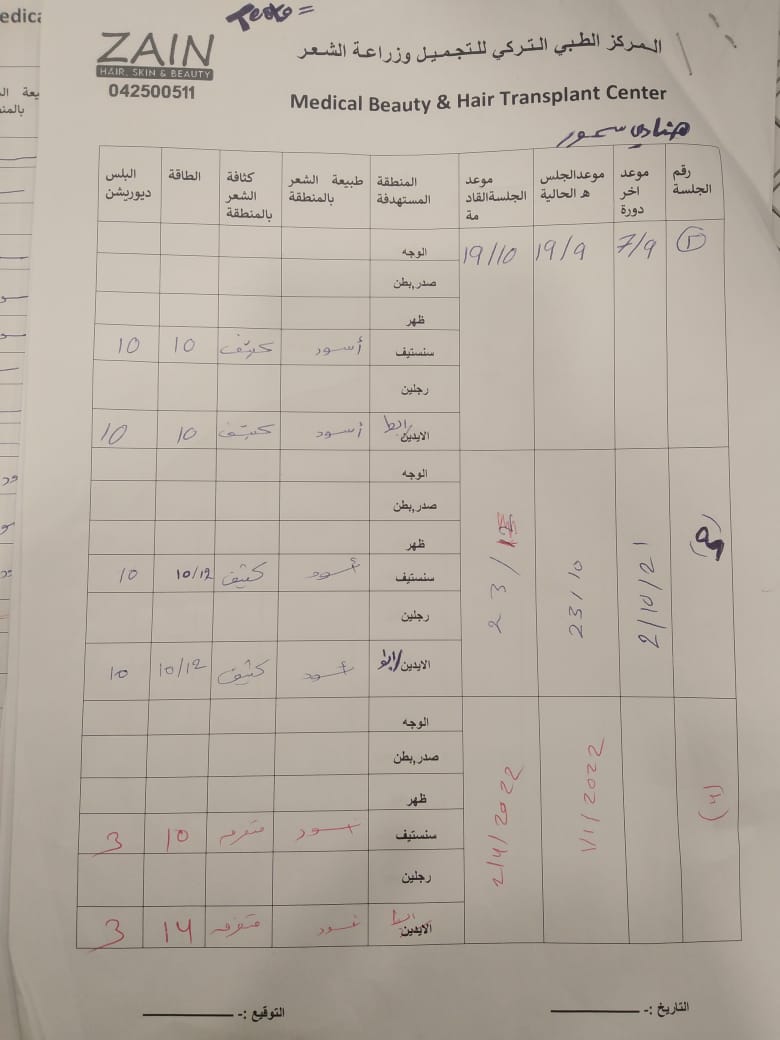 edica
Texto =
ZAIN
HAIR, SKIN & BEAUTY
042500511
المركز الطبي التركي للتجميل وزراعة الشعر
Medical Beauty & Hair Transplant Center
هنادي سمور
رقم الجلسة | موعد اخر دورة | موعد الجلسة الحالية | موعد الجلسة القادمة | المنطقة المستهدفة | طبيعة الشعر بالمنطقة | كثافة الشعر بالمنطقة | الطاقة | البلس ديوريشن
7/9 19/9 19/10 الوجه
صدر,بطن
ظهر
سنستيف أسود كثيف 10 10
رجلين
الايدين/ابط أسود كثيف 10 10
الوجه
صدر,بطن
ظهر
2/10/21 23/10 23/
سنستيف أسود كثيف 10/12 10
رجلين
الايدين/ابط أسود كثيف 10/12 10
الوجه
صدر,بطن
ظهر
(4) 1/1/2022 2/4/2022
سنستيف اسود متفرقه 10 3
رجلين
الايدين ابط اسود متفرقه 14 3
التاريخ :- التوقيع :-